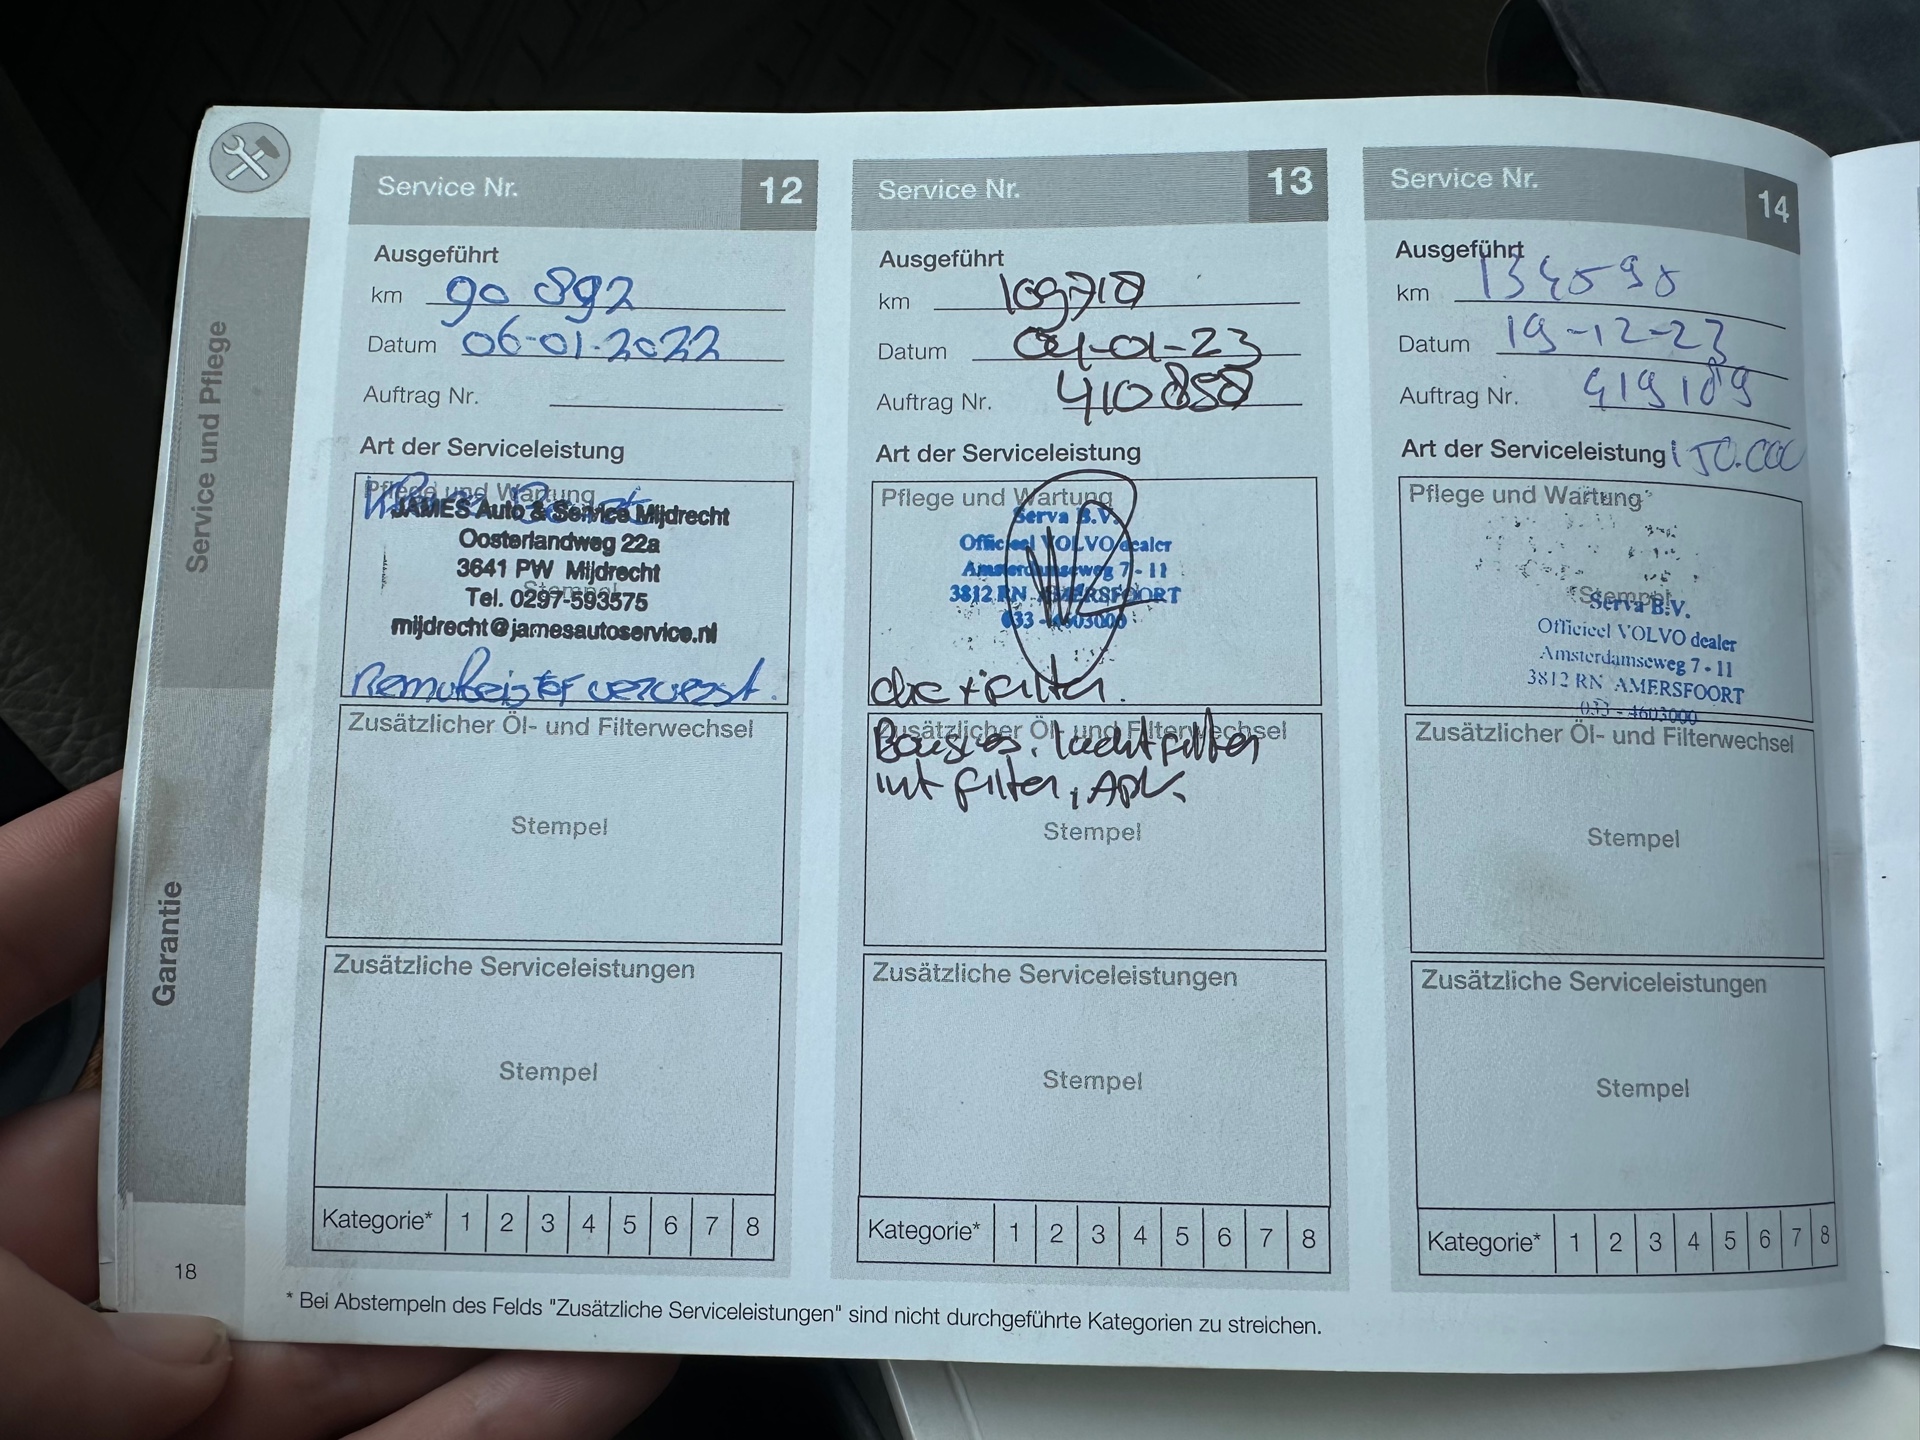 Service und Pflege
Garantie
18
Service Nr. 12
Ausgeführt
km 90 892
Datum 06-01-2022
Auftrag Nr.
Art der Serviceleistung
Pflege und Wartung
JAMES Auto & Service Mijdrecht
Oosterlandweg 22a
3641 PW Mijdrecht
Stempel
Tel. 0297-593575
mijdrecht@jamesautoservice.nl
Remvloeistof ververst.
Zusätzlicher Öl- und Filterwechsel
Stempel
Zusätzliche Serviceleistungen
Stempel
Kategorie* 1 2 3 4 5 6 7 8
Service Nr. 13
Ausgeführt
km 109718
Datum 04-01-23
Auftrag Nr. 410858
Art der Serviceleistung
Pflege und Wartung
Serva B.V.
Officieel VOLVO dealer
Amsterdamseweg 7 - 11
3812 RN AMERSFOORT
033 - 4603000
olie + filter.
Zusätzlicher Öl- und Filterwechsel
Bougies. luchtfilter
int filter, APK.
Stempel
Zusätzliche Serviceleistungen
Stempel
Kategorie* 1 2 3 4 5 6 7 8
Service Nr. 14
Ausgeführt
km
Datum 19-12-23
Auftrag Nr. 419189
Art der Serviceleistung 150.000
Pflege und Wartung
Stempel
Serva B.V.
Officieel VOLVO dealer
Amsterdamseweg 7 - 11
3812 RN AMERSFOORT
033 - 4603000
Zusätzlicher Öl- und Filterwechsel
Stempel
Zusätzliche Serviceleistungen
Stempel
Kategorie* 1 2 3 4 5 6 7 8
* Bei Abstempeln des Felds "Zusätzliche Serviceleistungen" sind nicht durchgeführte Kategorien zu streichen.